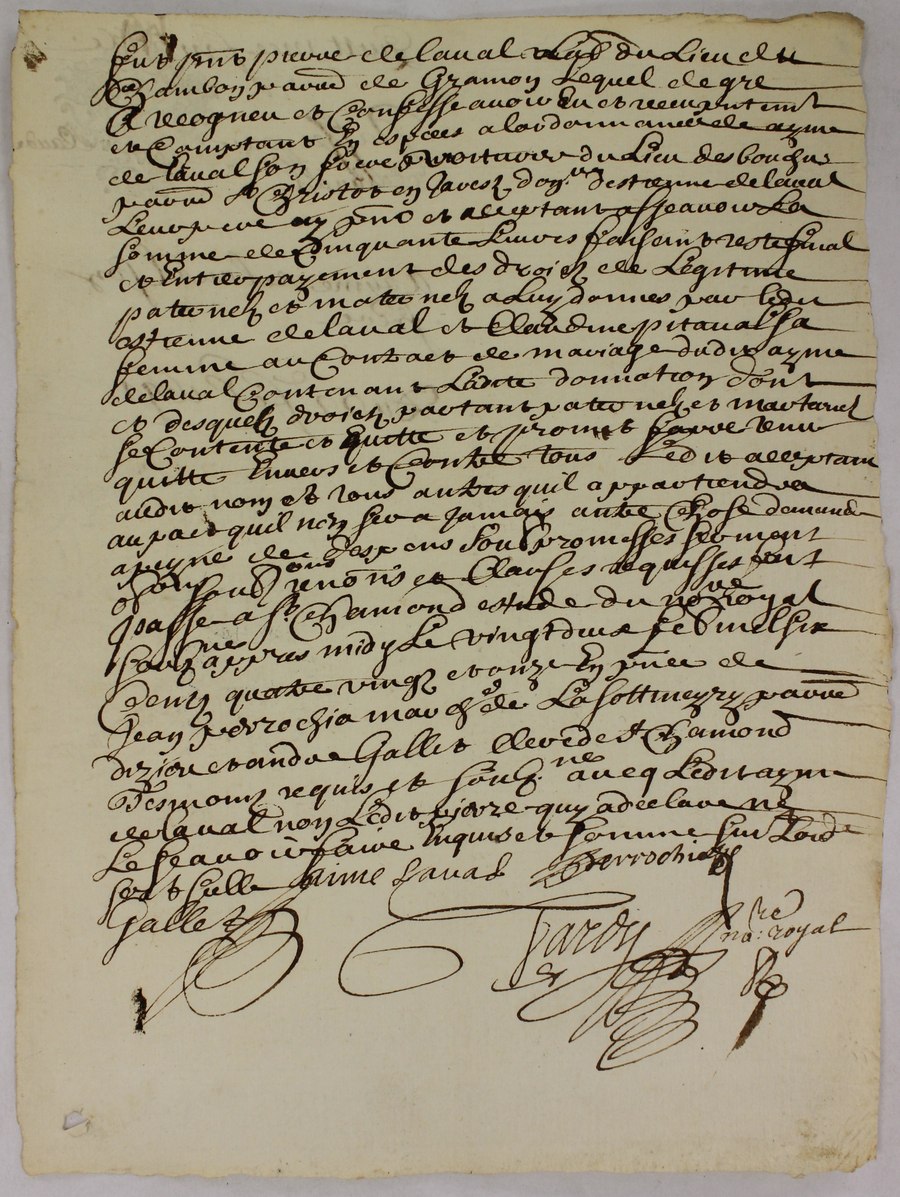 fut pnt pierre delaval du Lieu du
Chambon parr de Gramon Lequel de gre
A recogneu et Confesse avoir Eu et receu
et Comptant En especes a lordonnance de ayme
de laval son frere voiturier du Lieu des
parr St Christot en Jarest destienne delaval
Leur pere pnt et acceptant a sçeavoir La
somme de Cinquante Livres faisant reste final
et Entier payement des droicz de Legitime
paternelz et maternelz a Luy donnes par ledit
estienne delaval et Claudine pitaval sa
femme au Contract de mariage dudit ayme
delaval Contenant Ladite donnation dont
et desquelz droicz partant paternelz et
se Contente et quitte et promet faire tenir
quitte Envers et Contre tous Ledit acceptant
audit nom et tous autres quil appartiendra
au pact quil nen sera Jamais autre Chose demande
a peyne de tous despens soubz promesses serment
soubz renons et Clauses requises fait et
passe a St Chamond estude du nore royal
soubzne appres midy Le vingt deux feb mil six
Cents quatre vingt et onze En pnce de
Jean perrochia march de Lasottmeyry parr
dizieu et andre Gallet clerc de St Chamond
tesmoins requis et soubzne avecq Ledit ayme
delaval non Ledit pierre quy a declare ne
Le sçeavoir faire Enquis et somme sur Lord
aime Laval Perrochia
Gallet
Tardy nore royal